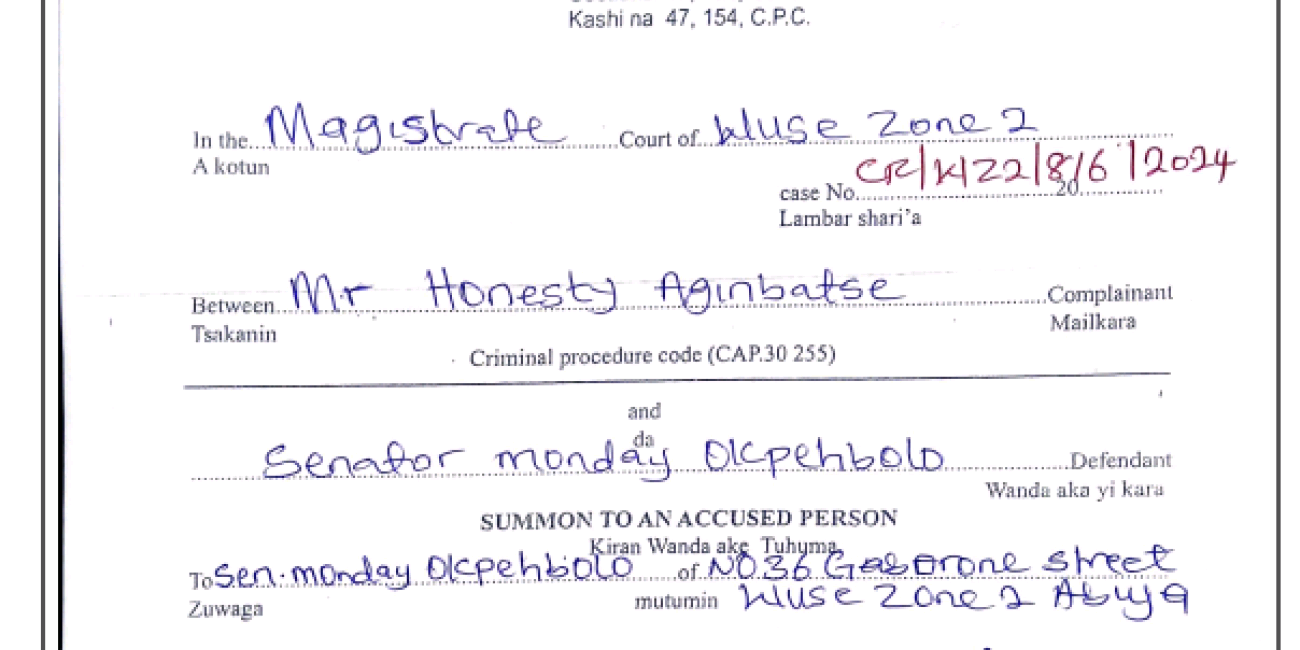 Kashi na 47, 154, C.P.C.
In the Magistrate Court of Wuse Zone 2
A kotun
CR/K/22/8/6/2024
case No. 20
Lambar shari'a
Between Mr Honesty Aginbatse Complainant
Tsakanin Mailkara
Criminal procedure code (CAP.30 255)
and
da
Senator monday Okpehbolo Defendant
Wanda aka yi kara
SUMMON TO AN ACCUSED PERSON
Kiran Wanda ake Tuhuma
To Sen. monday Okpehbolo of NO 36 Gaborone street
Zuwaga mutumin Wuse Zone 2 Abuja